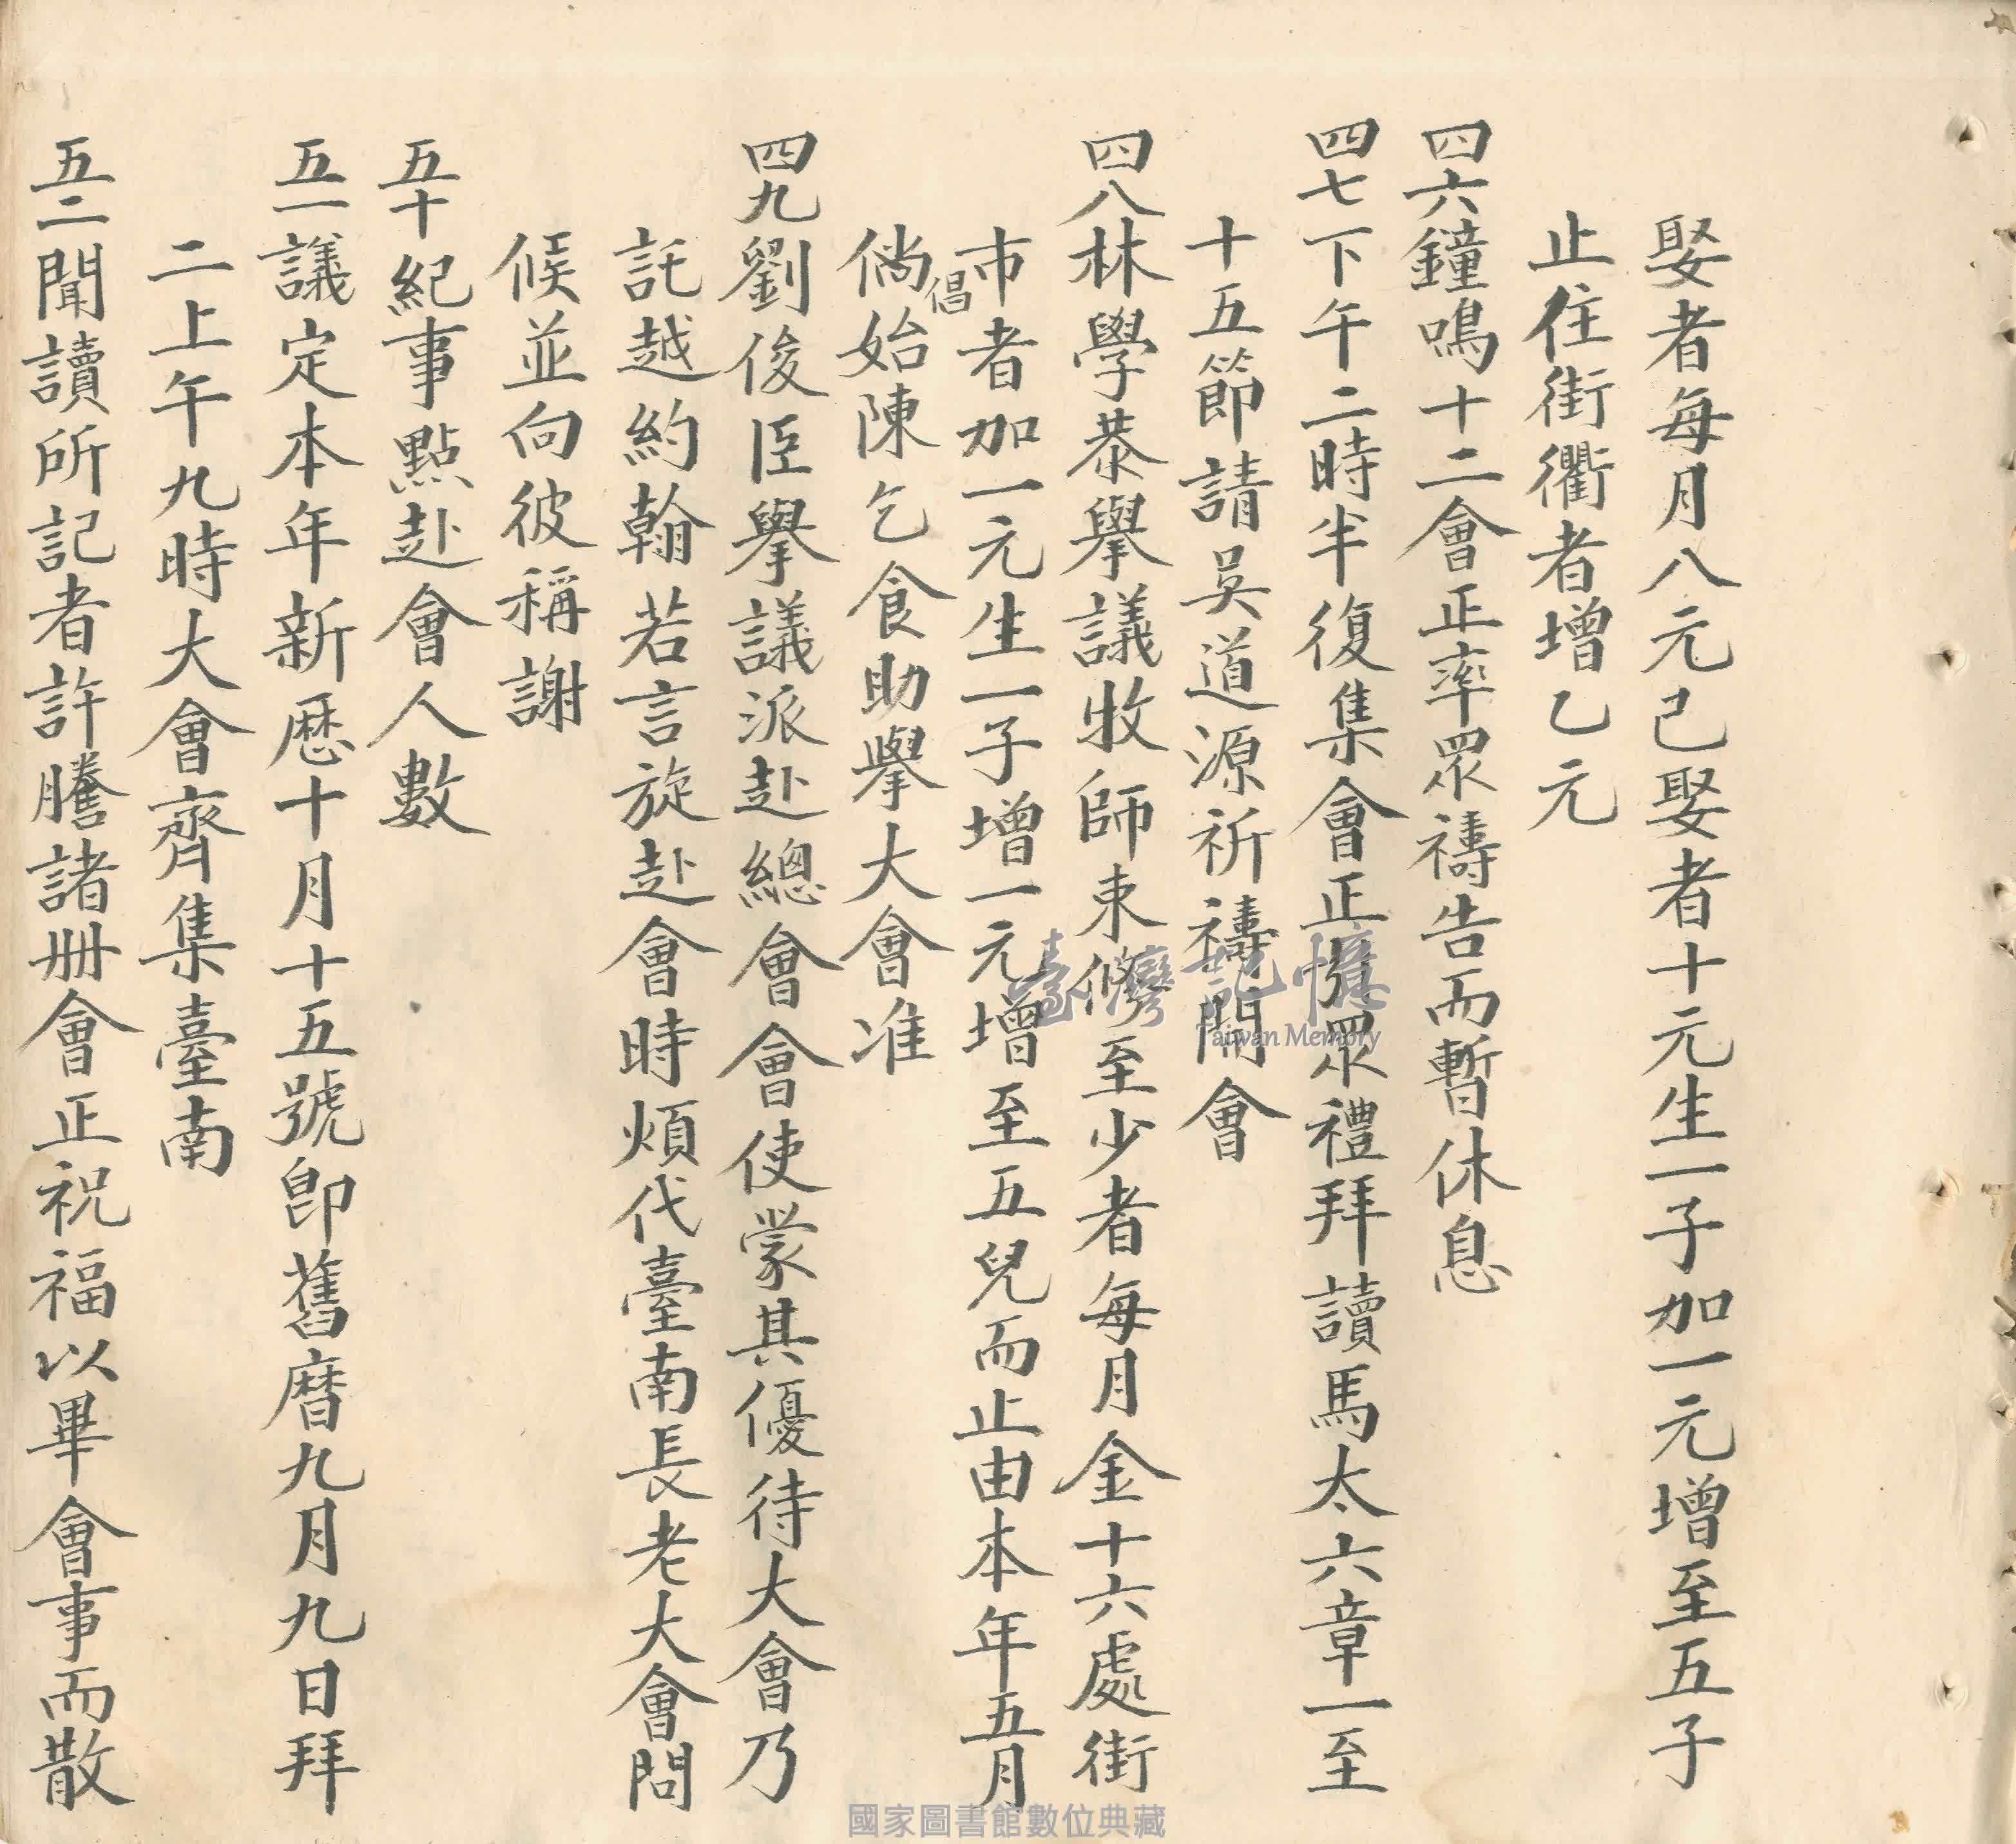 娶者每月八元已娶者十元生一子加一元增至五子
止住街衢者增乙元
四六鐘鳴十二會正率眾禱告而暫休息
四七下午二時半復集會正撥眾禮拜讀馬太六章一至
十五節請吳道源祈禱開會
四八林學恭舉議牧師束修至少者每月金十六處街
市者加一元生一子增一元增至五兒而止由本年五月
倡
倘始陳乞食助舉大會准
四九劉俊臣舉議派赴總會會使蒙其優待大會乃
託越約翰若言旋赴會時煩代臺南長老大會問
候並向彼稱謝
五十紀事點赴會人數
五一議定本年新曆十月十五號即舊曆九月九日拜
二上午九時大會齊集臺南
五二聞讀所記者許謄諸冊會正祝福以畢會事而散
臺灣記憶
Taiwan Memory
國家圖書館數位典藏